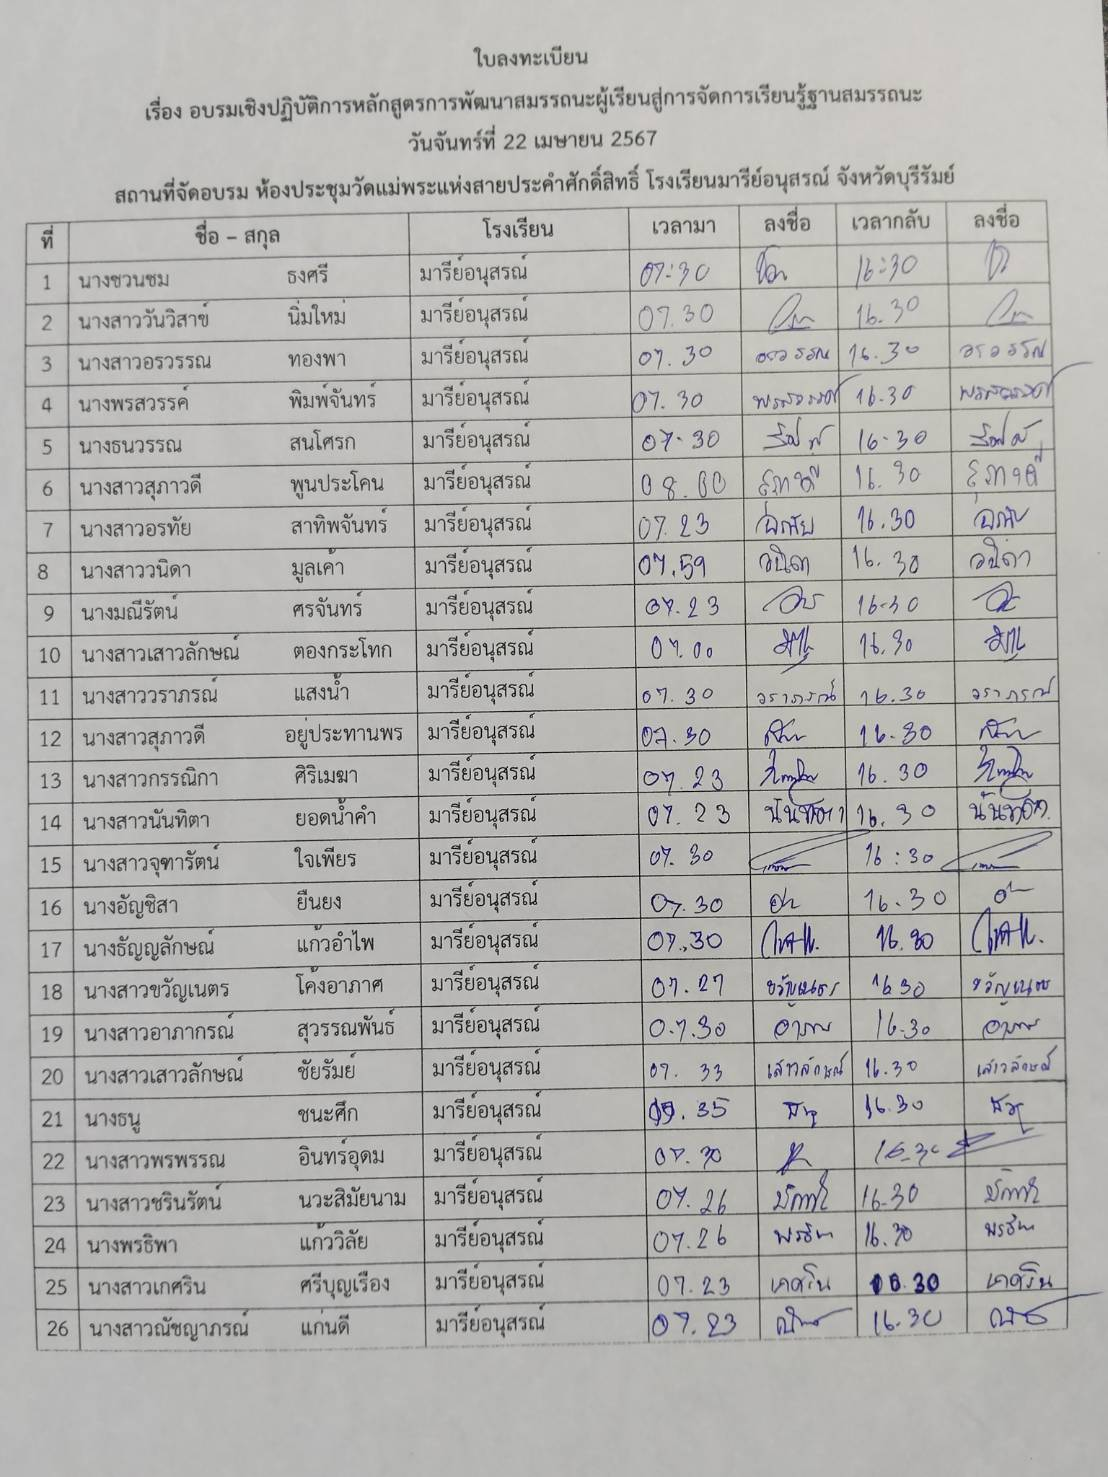 ใบลงทะเบียน
เรื่อง อบรมเชิงปฏิบัติการหลักสูตรการพัฒนาสมรรถนะผู้เรียนสู่การจัดการเรียนรู้ฐานสมรรถนะ
วันจันทร์ที่ 22 เมษายน 2567
สถานที่จัดอบรม ห้องประชุมวัดแม่พระแห่งสายประคำศักดิ์สิทธิ์ โรงเรียนมารีย์อนุสรณ์ จังหวัดบุรีรัมย์
ที่ ชื่อ – สกุล โรงเรียน เวลามา ลงชื่อ เวลากลับ ลงชื่อ
1 นางชวนชม ธงศรี มารีย์อนุสรณ์ 07:30 16:30
2 นางสาววันวิสาข์ นิ่มใหม่ มารีย์อนุสรณ์ 07.30 16.30
3 นางสาวอรวรรณ ทองพา มารีย์อนุสรณ์ 07.30 อรวรรณ 16.30 อรวรรณ
4 นางพรสวรรค์ พิมพ์จันทร์ มารีย์อนุสรณ์ 07.30 พรสวรรค์ 16.30 พรสวรรค์
5 นางธนวรรณ สนโศรก มารีย์อนุสรณ์ 07-30 16-30
6 นางสาวสุภาวดี พูนประโคน มารีย์อนุสรณ์ 08.00 สุภาวดี 16.30 สุภาวดี
7 นางสาวอรทัย สาทิพจันทร์ มารีย์อนุสรณ์ 07.23 อรทัย 16.30
8 นางสาววนิดา มูลเค้า มารีย์อนุสรณ์ 07.59 วนิดา 16.30 วนิดา
9 นางมณีรัตน์ ศรจันทร์ มารีย์อนุสรณ์ 07.23 16-30
10 นางสาวเสาวลักษณ์ ตองกระโทก มารีย์อนุสรณ์ 07.00 16.30
11 นางสาววราภรณ์ แสงน้ำ มารีย์อนุสรณ์ 07.30 วราภรณ์ 16.30 วราภรณ์
12 นางสาวสุภาวดี อยู่ประทานพร มารีย์อนุสรณ์ 07.30 16.30
13 นางสาวกรรณิกา ศิริเมฆา มารีย์อนุสรณ์ 07.23 16.30
14 นางสาวนันทิตา ยอดน้ำคำ มารีย์อนุสรณ์ 07.23 นันทิตา 16.30 นันทิตา
15 นางสาวจุฑารัตน์ ใจเพียร มารีย์อนุสรณ์ 07.30 16:30
16 นางอัญชิสา ยืนยง มารีย์อนุสรณ์ 07.30 16.30
17 นางธัญญลักษณ์ แก้วอำไพ มารีย์อนุสรณ์ 07.30 16.30
18 นางสาวขวัญเนตร โค้งอาภาศ มารีย์อนุสรณ์ 07.27 ขวัญเนตร 1630 ขวัญเนตร
19 นางสาวอาภากรณ์ สุวรรณพันธ์ มารีย์อนุสรณ์ 0.7.30 16.30
20 นางสาวเสาวลักษณ์ ชัยรัมย์ มารีย์อนุสรณ์ 07.33 เสาวลักษณ์ 16.30 เสาวลักษณ์
21 นางธนู ชนะศึก มารีย์อนุสรณ์ .35 16.30
22 นางสาวพรพรรณ อินทร์อุดม มารีย์อนุสรณ์ 07.30 16.30
23 นางสาวชรินรัตน์ นวะสิมัยนาม มารีย์อนุสรณ์ 07.26 16-30
24 นางพรธิพา แก้ววิลัย มารีย์อนุสรณ์ 07.26 พรธิพา 16.30 พรธิพา
25 นางสาวเกศริน ศรีบุญเรือง มารีย์อนุสรณ์ 07.23 เกศริน 16.30 เกศริน
26 นางสาวณัชญาภรณ์ แก่นดี มารีย์อนุสรณ์ 07.23 16.30